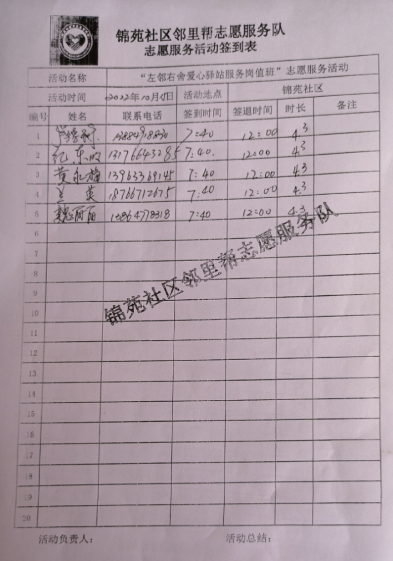 锦苑社区邻里帮志愿服务队
志愿服务活动签到表
活动名称 “左邻右舍爱心驿站服务岗值班”志愿服务活动
活动时间 2022年10月 日 活动地点 锦苑社区
编号 姓名 联系电话 签到时间 签退时间 时长 备注
1 7:40 12:00 4.3
2 13176643285 7:40. 12:00 4.3
3 13963369145 7:40 12:00 4.3
4 兰英 18766712675 7:40 12:00 4.3
5 魏丽丽 13864778318 7:40 12:00 4.3
6
7
8
9
10
11
12
13
14
15
16
17
18
19
20
锦苑社区邻里帮志愿服务队
活动负责人: 活动总结: